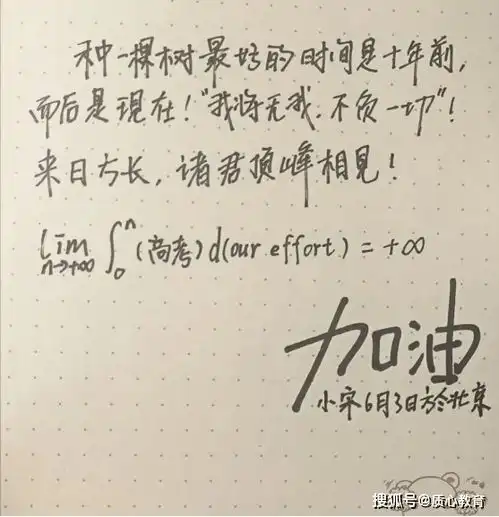 种一棵树最好的时间是十年前，
而后是现在！"我将无我，不负一切"！
来日方长，诸君顶峰相见！
lim n→+∞ ∫₀ⁿ (高考) d(our effort) = +∞
加油
小宋6月3日於北京
搜狐号@质心教育